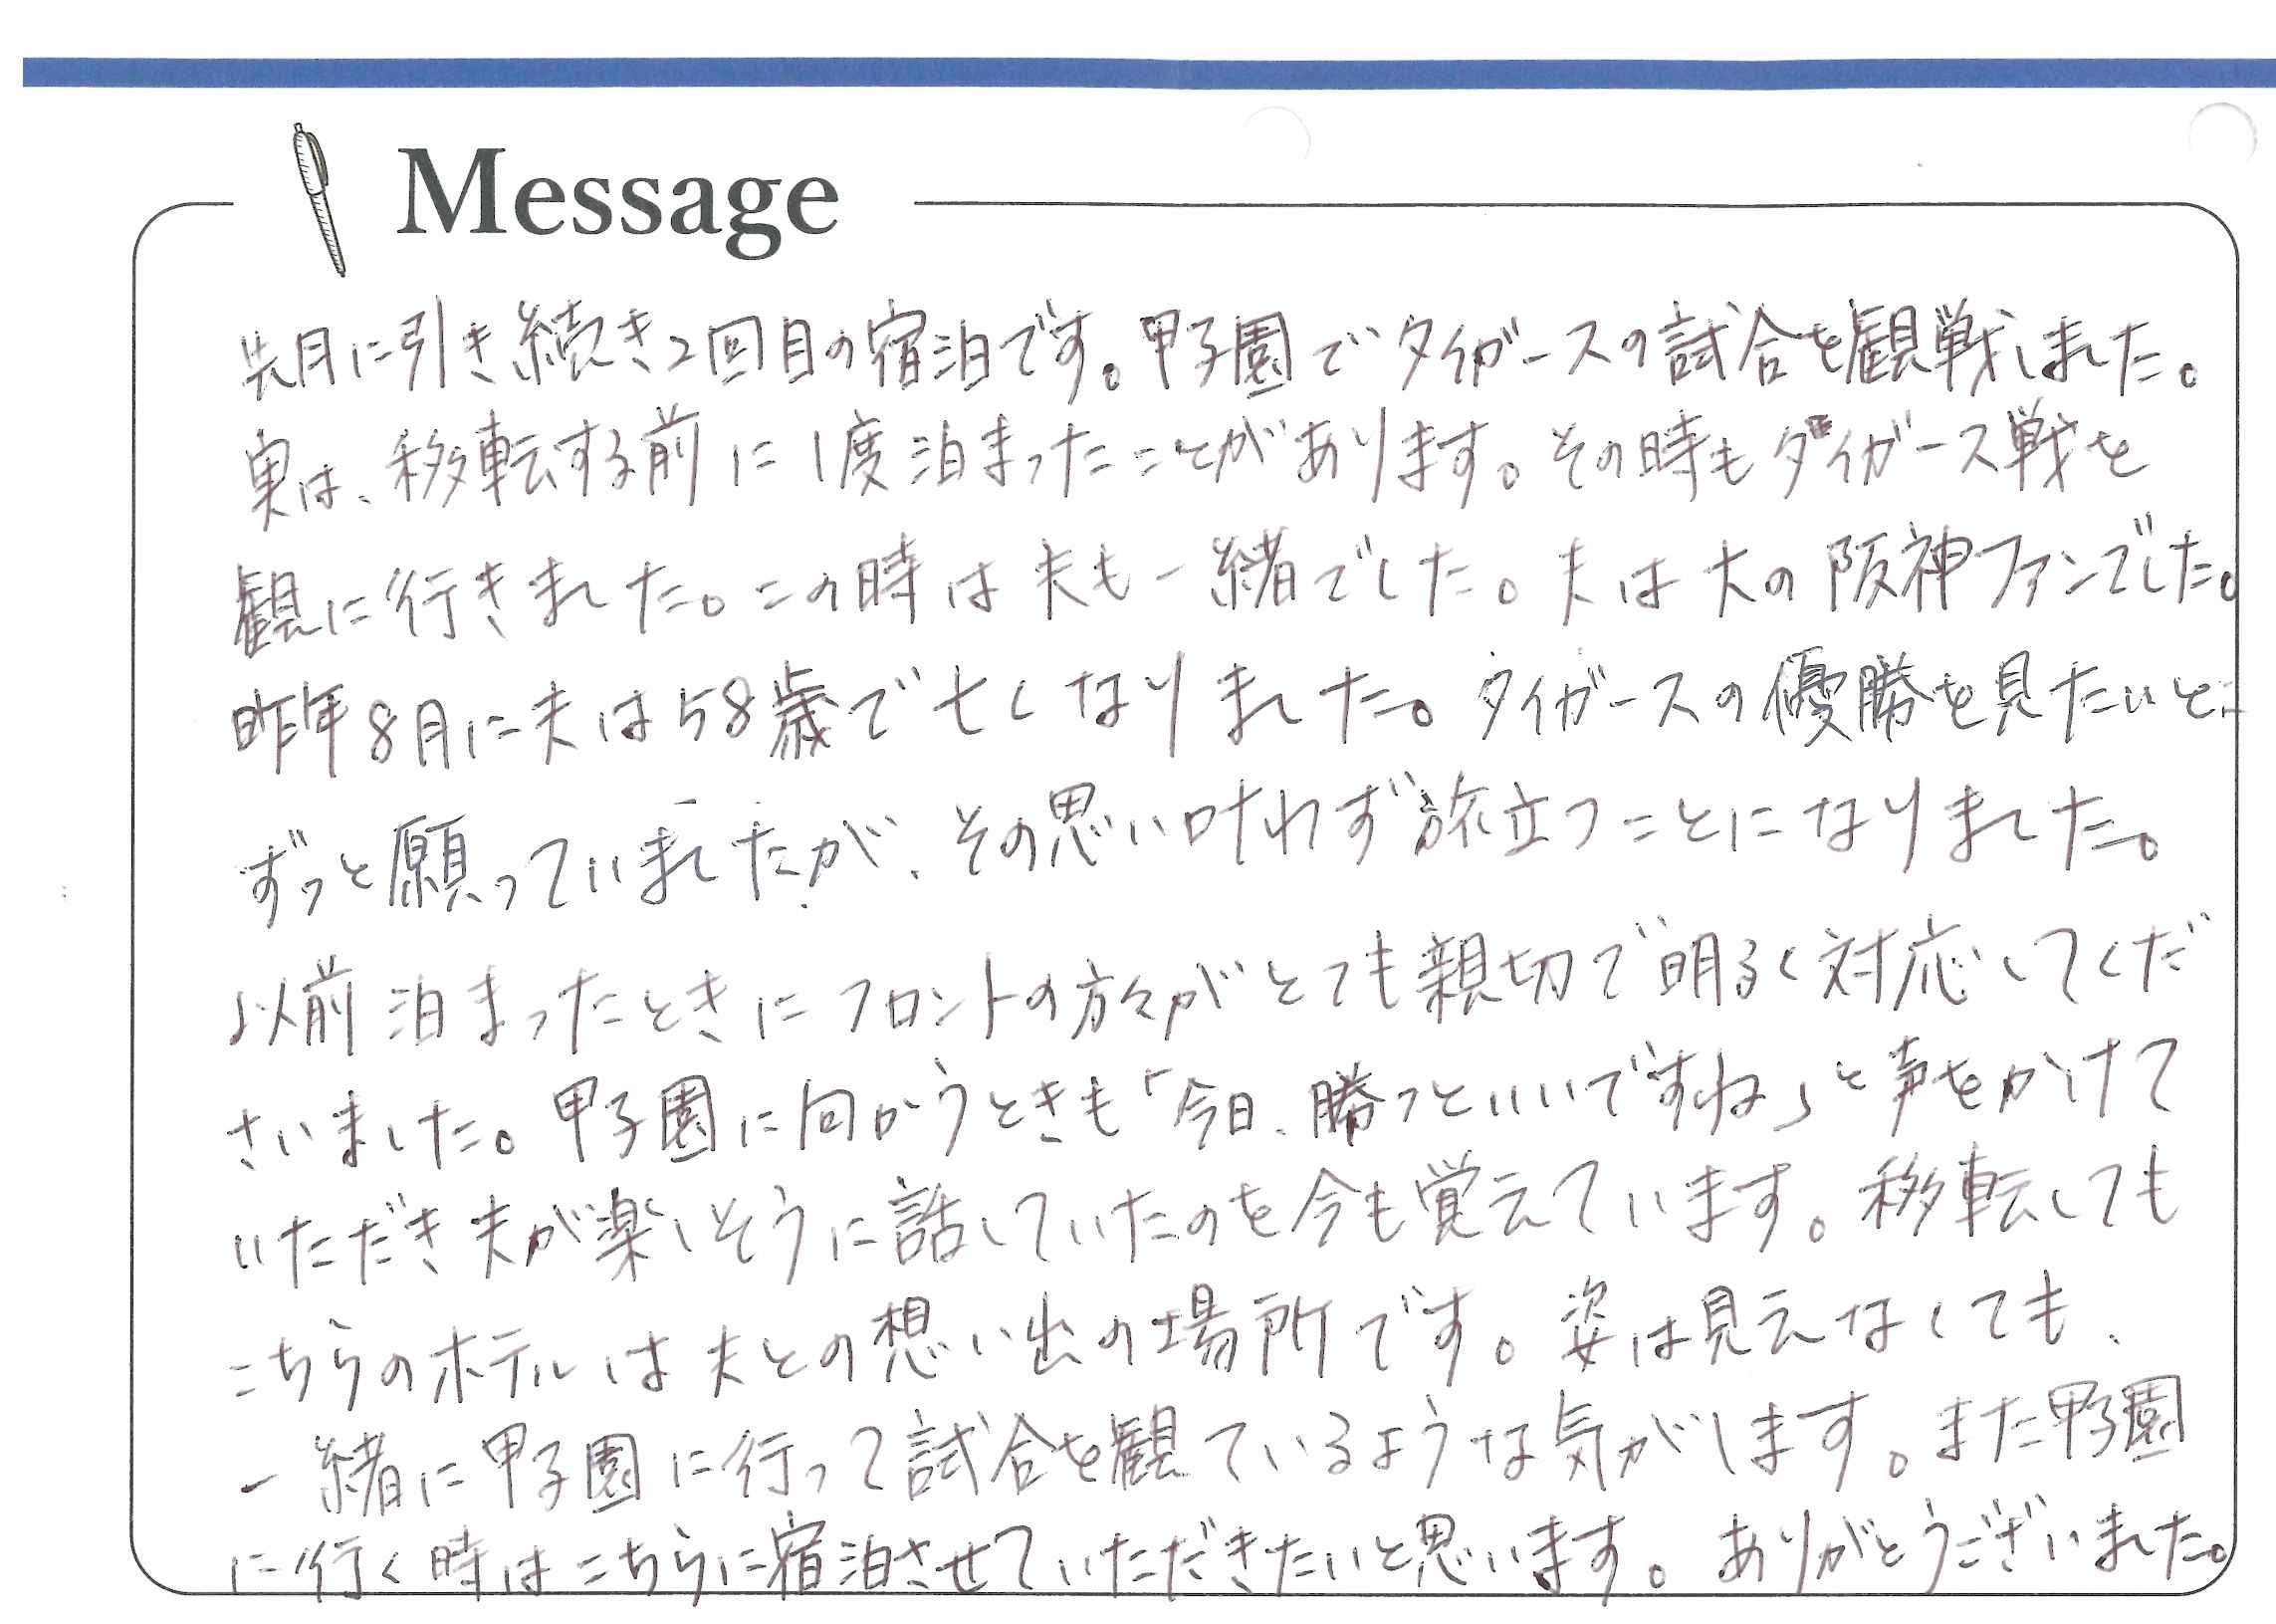 Message
先月に引き続き2回目の宿泊です。甲子園でタイガースの試合を観戦しました。
実は、移転する前に1度泊まったことがあります。その時もタイガース戦を
観に行きました。この時は夫も一緒でした。夫は大の阪神ファンでした。
昨年8月に夫は58歳で亡くなりました。タイガースの優勝を見たいと
ずっと願っていましたが、その思い叶わず旅立つことになりました。
以前泊まったときにフロントの方々がとても親切で明るく対応してくだ
さいました。甲子園に向かうときも「今日、勝つといいですね」と声をかけて
いただき夫が楽しそうに話していたのを今も覚えています。移転しても
こちらのホテルは夫との想い出の場所です。姿は見えなくても、
一緒に甲子園に行って試合を観ているような気がします。また甲子園
に行く時はこちらに宿泊させていただきたいと思います。ありがとうございました。